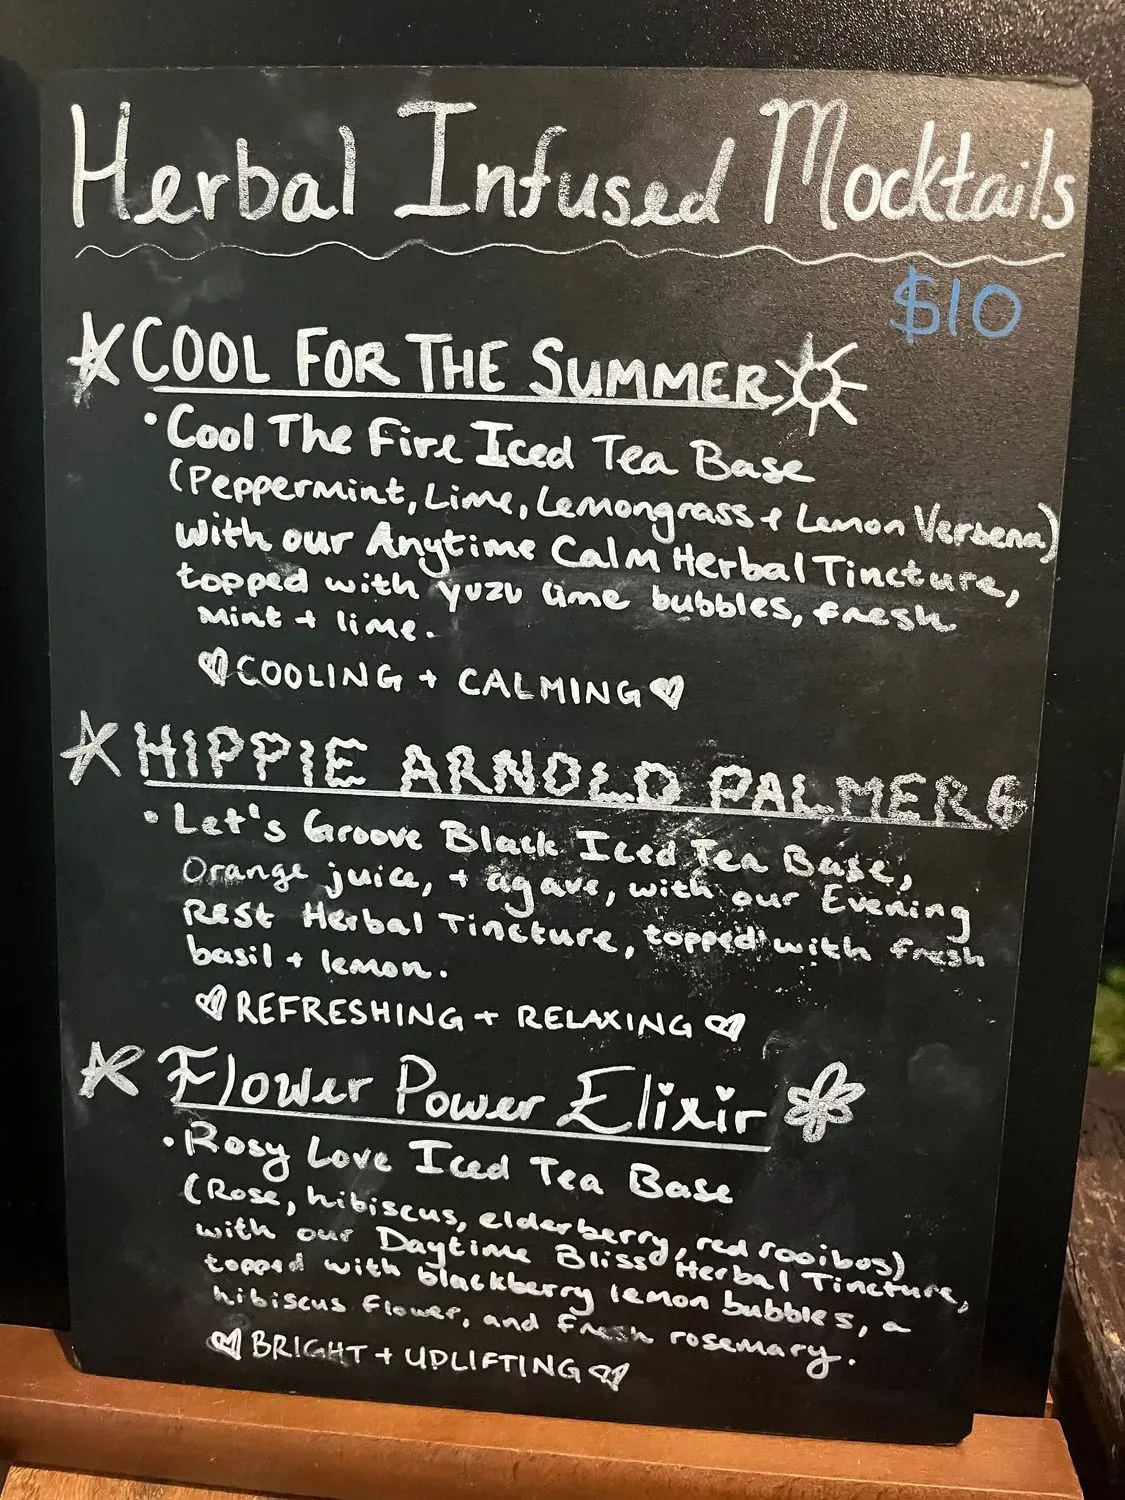 Herbal Infused Mocktails
$10
COOL FOR THE SUMMER
• Cool The Fire Iced Tea Base
(Peppermint, Lime, Lemongrass + Lemon Verbena)
with our Anytime Calm Herbal Tincture,
topped with yuzu lime bubbles, fresh
mint + lime.
COOLING + CALMING
HIPPIE ARNOLD PALMER
• Let's Groove Black Iced Tea Base,
Orange juice, + agave, with our Evening
Rest Herbal Tincture, topped with fresh
basil + lemon.
REFRESHING + RELAXING
Flower Power Elixir
• Rosy Love Iced Tea Base
(Rose, hibiscus, elderberry, red rooibos)
with our Daytime Bliss Herbal Tincture,
topped with blackberry lemon bubbles, a
hibiscus flower, and fresh rosemary.
BRIGHT + UPLIFTING